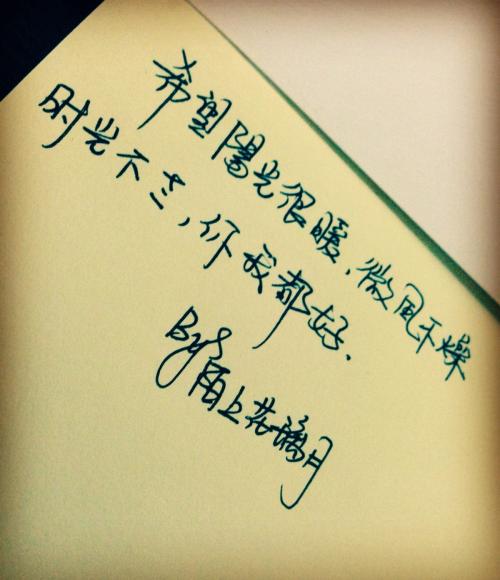 希望陽光很暖，微风不燥
时光不老，你我都好.
By:陌上花璃月